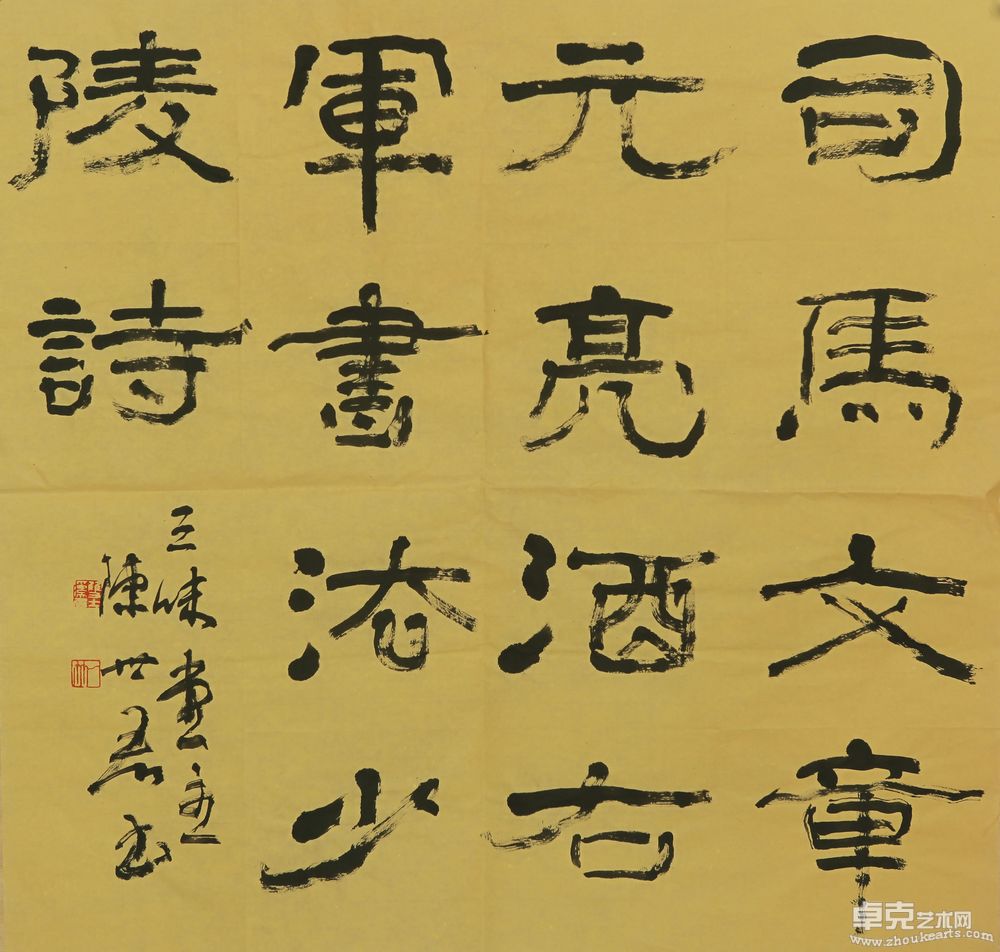 司馬文章
元亮酒右
軍書法少
陵詩
三味畫室
陳世君書
卓克艺术网
www.zhoukearts.com